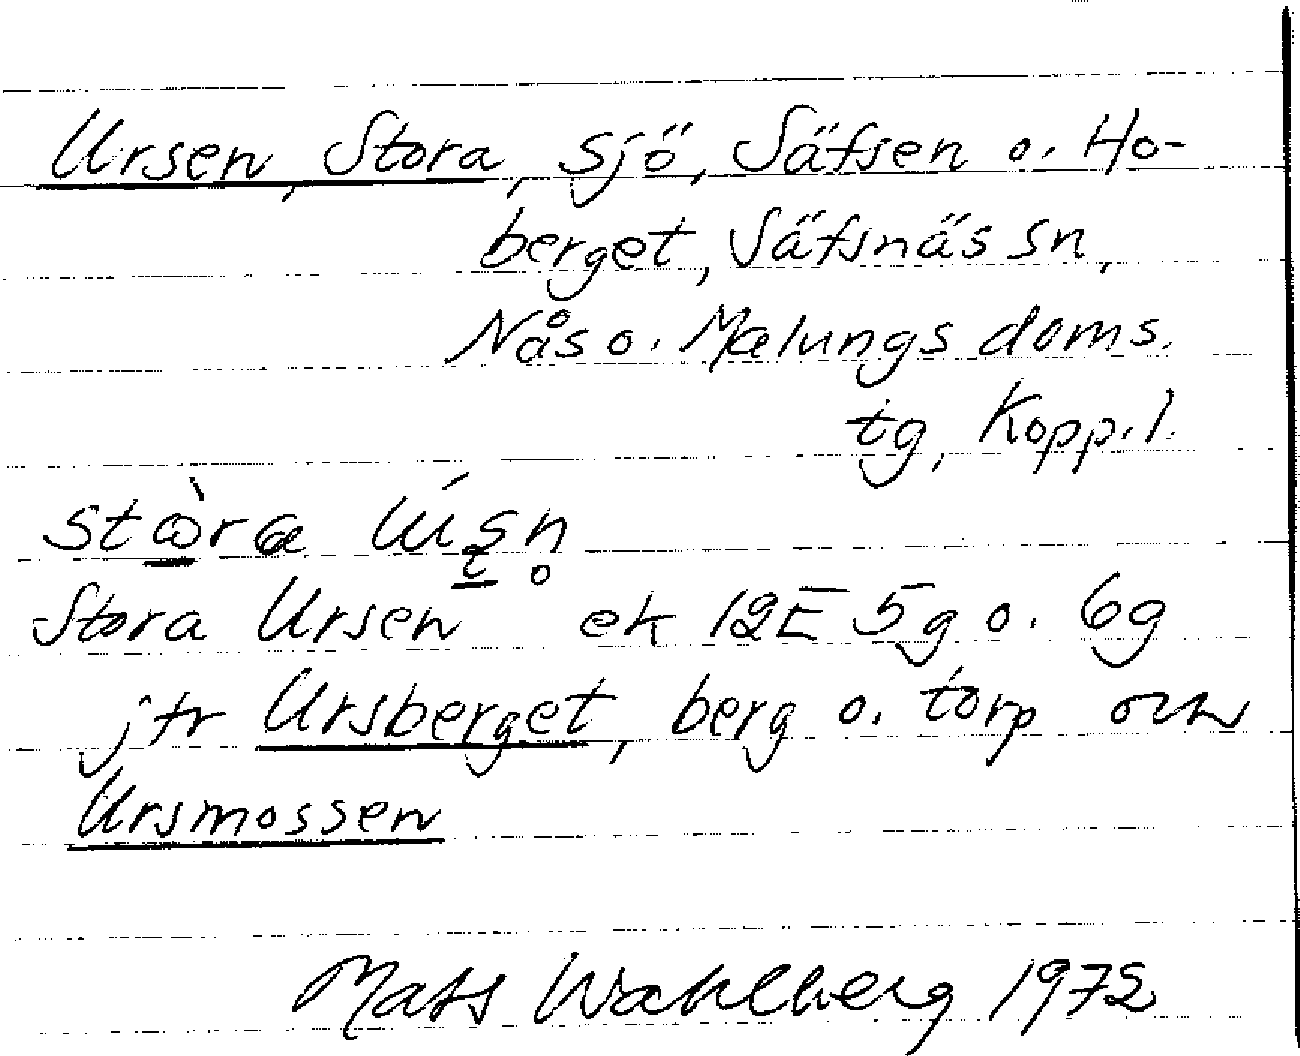 Ursen, Stora, sjö, Säfsen o. Ho-
berget, Säfsnäs sn,
Nås o. Malungs doms.
tg, Kopp. l.
Stora Ursen ek 12E 5g o. 6g
jfr Ursberget, berg o. torp och
Ursmossen
Mats Wahlberg 1972